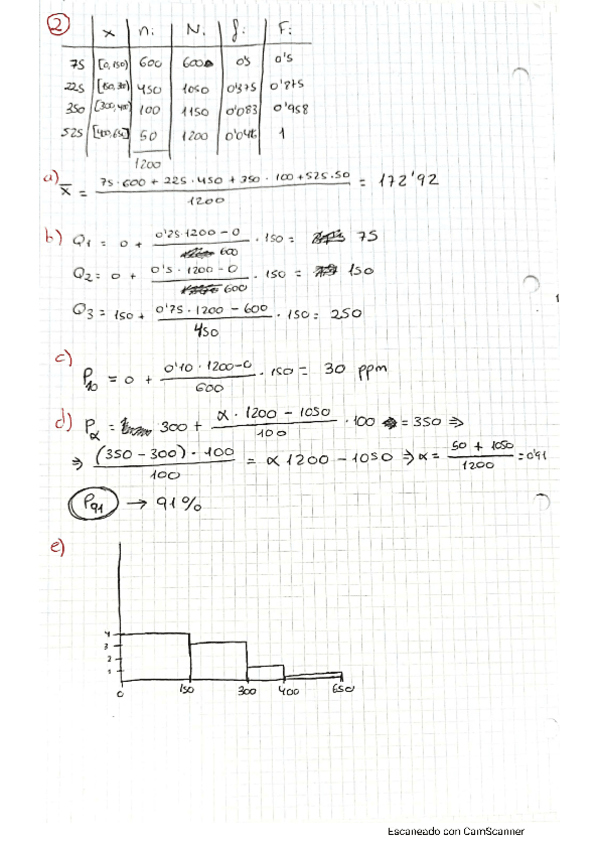 2
x nᵢ Nᵢ fᵢ Fᵢ
75 [0,150) 600 600 0'5 0'5
225 [150,300) 450 1050 0'375 0'875
350 [300,400) 100 1150 0'083 0'958
525 [400,650] 50 1200 0'046 1
1200
a) x̄ = (75·600 + 225·450 + 350·100 + 525·50) / 1200 = 172'92
b) Q1 = 0 + (0'25·1200 - 0) / 600 · 150 = 75
Q2 = 0 + (0'5·1200 - 0) / 600 · 150 = 150
Q3 = 150 + (0'75·1200 - 600) / 450 · 150 = 250
c) P10 = 0 + (0'10·1200 - 0) / 600 · 150 = 30 ppm
d) Pα = 300 + (α·1200 - 1050) / 100 · 100 = 350 ⇒
⇒ (350 - 300)·100 / 100 = α 1200 - 1050 ⇒ α = (50 + 1050) / 1200 = 0'91
P91 → 91%
e)
4
3
2
1
0 150 300 400 650
Escaneado con CamScanner